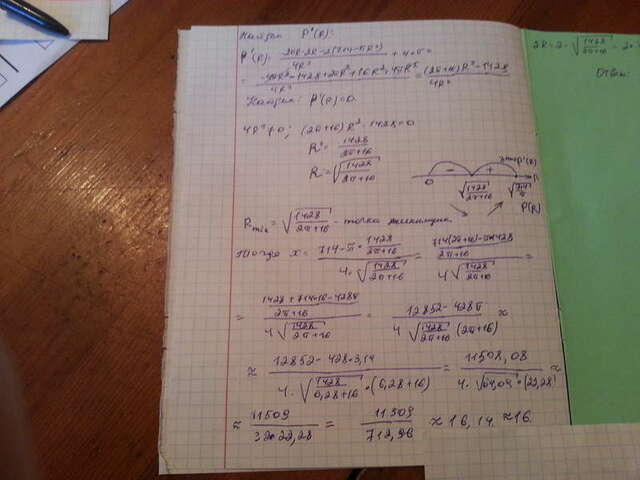 Найдём P'(R):
P'(R) = (2πR·2R - 2(714 - πR²))/4R² + 4 + π =
= (-4πR² - 1428 + 2πR² + 16R² + 4πR²)/4R² = ((2π+16)R² - 1428)/4R²
Найдём: P'(R)=0.
4R²≠0; (2π+16)R² - 1428=0
R² = 1428/(2π+16)
R = √(1428/(2π+16))
знак P'(R)
- +
0 √(1428/(2π+16)) R
P(R)
Rmin = √(1428/(2π+16)) - точка минимума
Тогда x = (714 - π·1428/(2π+16))/(4·√(1428/(2π+16))) = ((714(2π+16) - π·1428)/(2π+16))/(4√(1428/(2π+16))) =
= ((1428π + 714·16 - 1428π)/(2π+16))/(4√(1428/(2π+16))) = (12852 - 428π)/(4√(1428/(2π+16))(2π+16)) ≈
≈ (12852 - 428·3,14)/(4·√(1428/(6,28+16))·(6,28+16)) = 11508,08/(4·√64,09·(22,28)) ≈
≈ 11509/(32·22,28) = 11509/712,96 ≈ 16,14. ≈16.
2R = 2·√(1428/(2π+16))
Ответ: